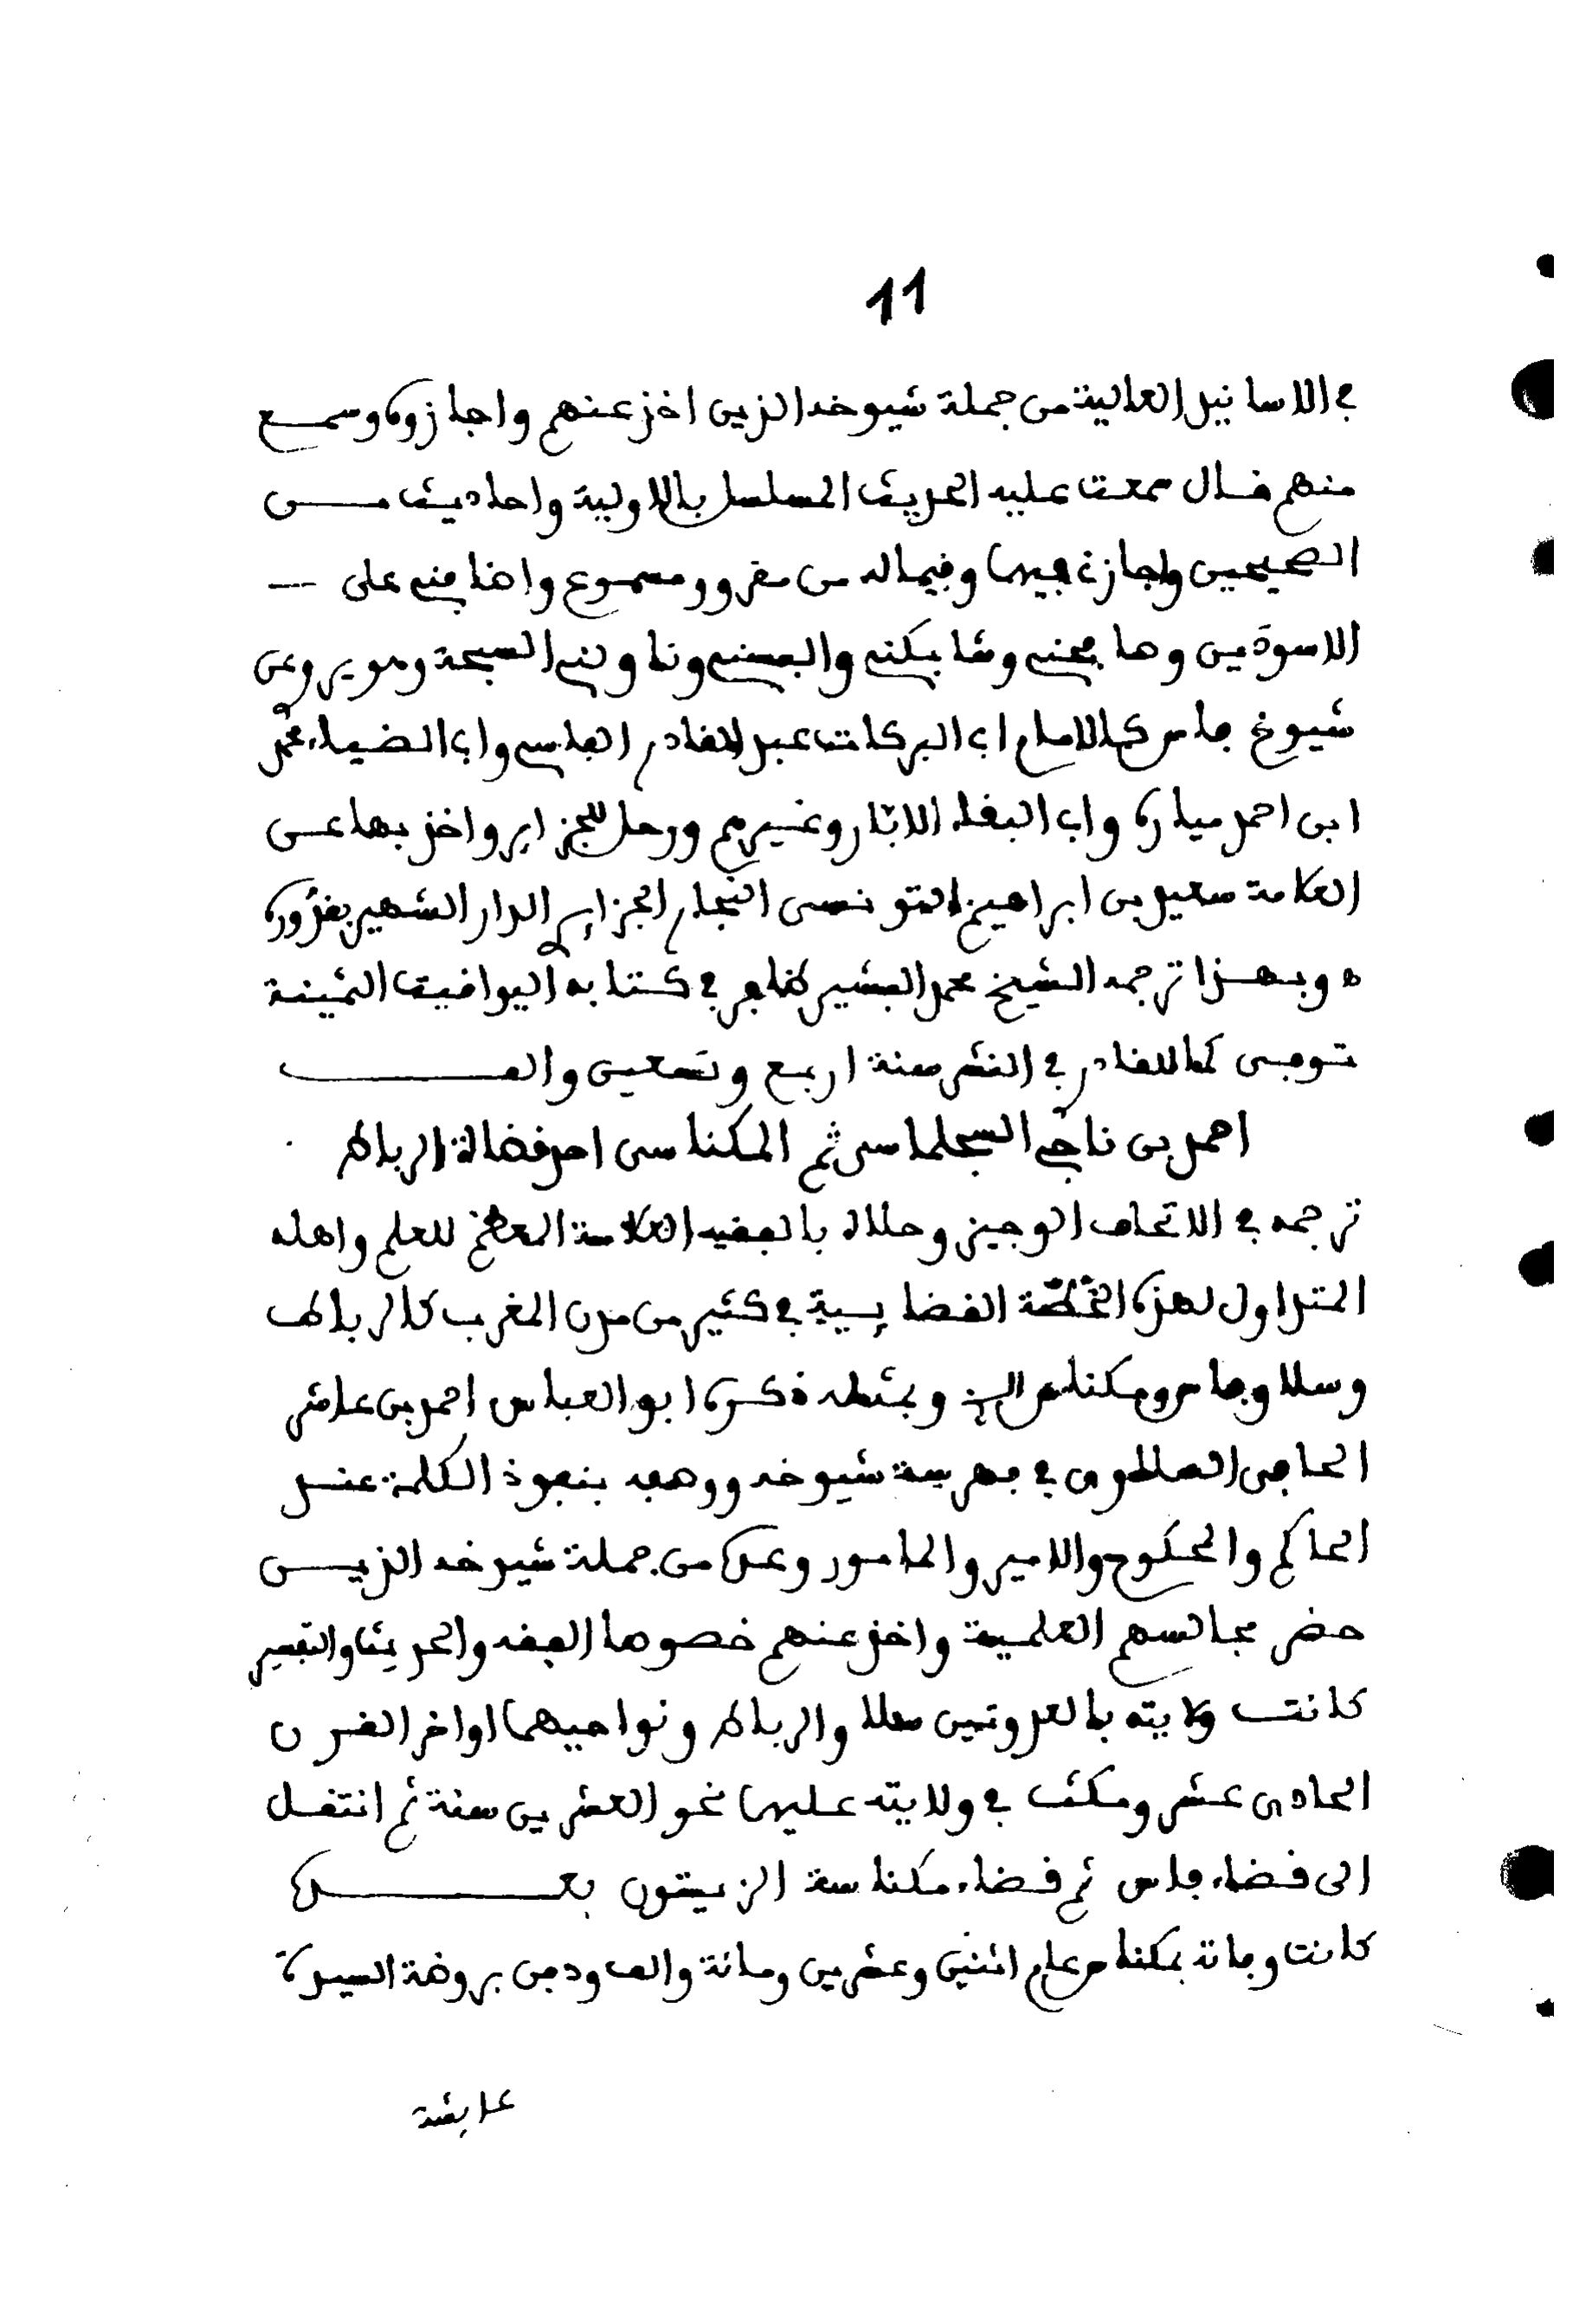 11
في الاسانيد العالية من جملة شيوخه الذين اخذ عنهم واجازوه وسمع
منهم قال سمعت عليه الحديث المسلسل بالاولية واحاديث من
الصحيحين واجازني فيها وفيما له من مقرو ومسموع واضافني على
الاسودين وصافحني وشابكني والبسني وناولني السبحة وهو يروي عن
شيوخ فاس كالامام ابي البركات عبد القادر الفاسي وابي الضياء محمد
ابن احمد ميارة وابي البقاء الابار وغيرهم ورحل للجزاير واخذ بها عن
العلامة سعيد بن ابراهيم التونسي النجار الجزايري الدار الشهير بقدورة
ه وبهذا ترجمه الشيخ محمد البشير ظافر في كتابه اليواقيت الثمينة
توفى كما للقادري في النشر سنة اربع وتسعين والف
احمد بن ناجي السجلماسي ثم المكناسي احد قضاة الرباط
ترجمه في الاتحاف الوجيز وحلاه بالفقيه العلامة المعظم للعلم واهله
المتداول لهذه الخطة القضايية في كثير من مدن المغرب كالرباط
وسلا وفاس ومكناس الخ وبمثله ذكره ابو العباس احمد بن عاشر
الحافي السلاوي في فهرسة شيوخه ووصفه بنفوذ الكلمة عند
الحاكم والمحكوم والامير والمامور وعده من جملة شيوخه الذين
حضر مجالسهم العلمية واخذ عنهم خصوصا الفقه والحديث والتفسير
كانت ولايته بالعدوتين سلا والرباط ونواحيهما اواخر القرن
الحادي عشر ومكث في ولايته عليها نحو العشرين سنة ثم انتقل
الى قضاء فاس ثم قضاء مكناسة الزيتون بعدها
كانت وفاته بمكناس عام اثنين وعشرين ومائة والف ودفن بروضة السيدة
عايشة